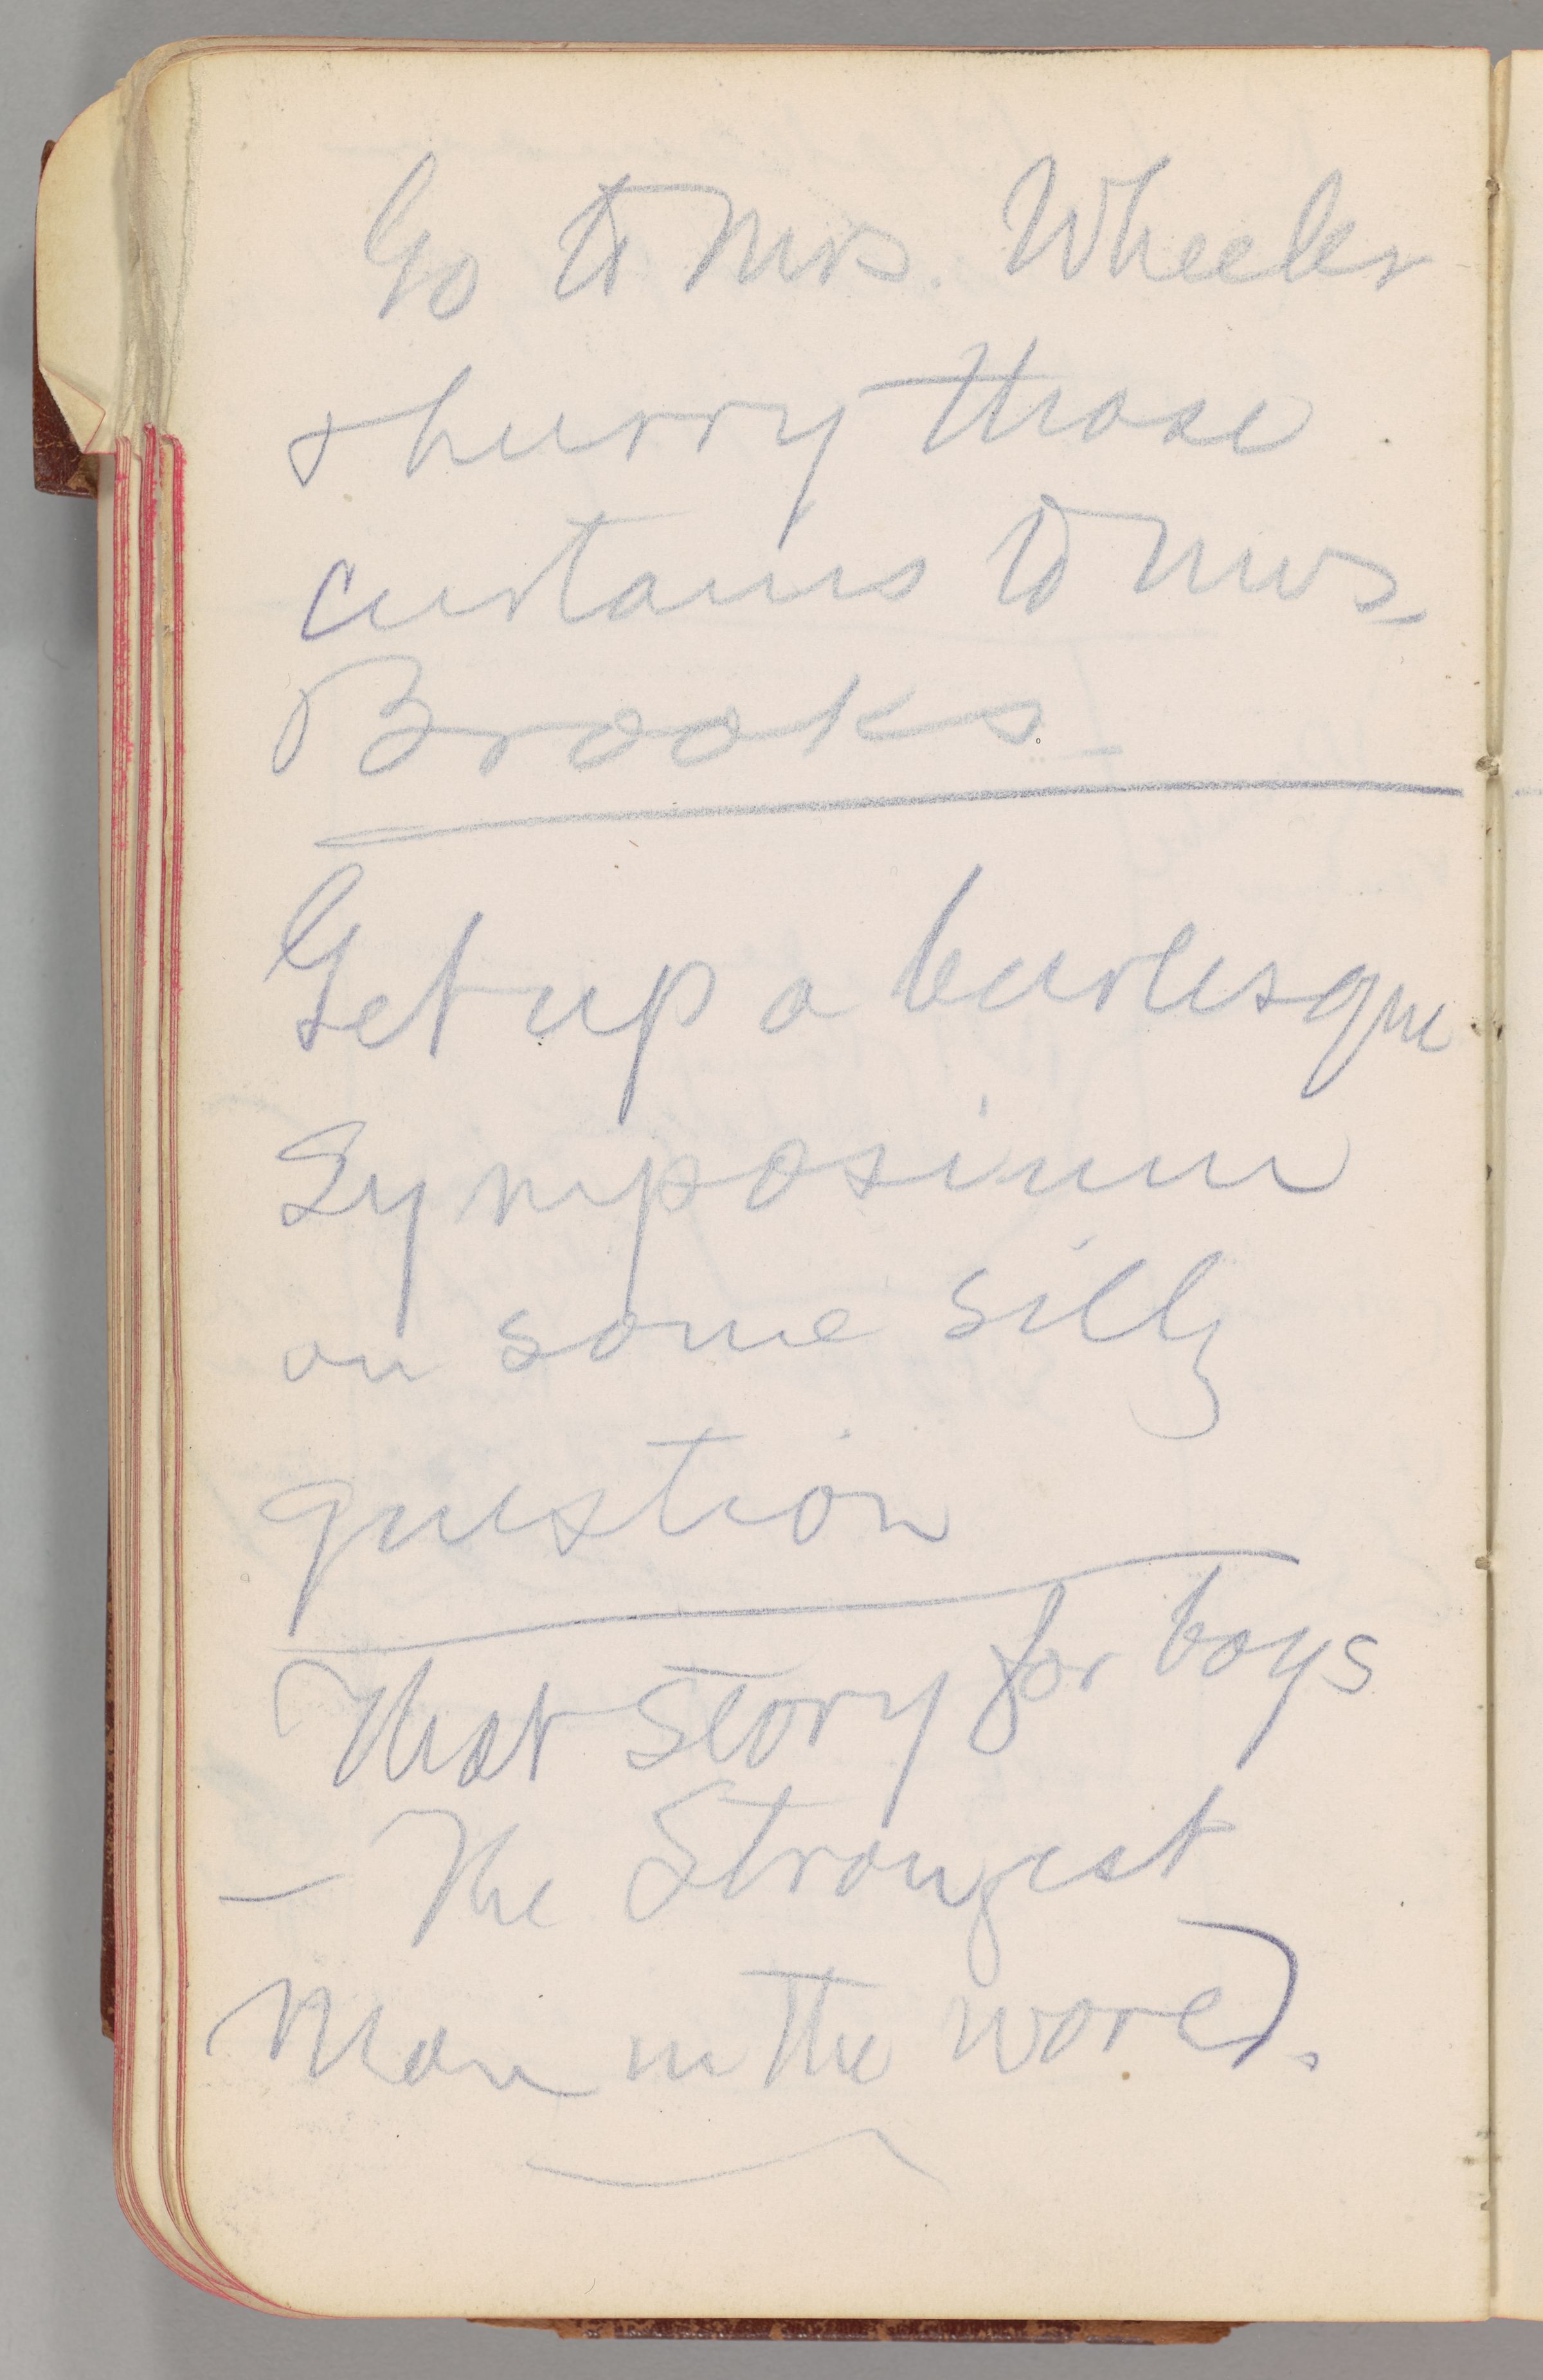 Go to Mrs. Wheeler
& hurry those
curtains to Mrs.
Brooks.
Get up a burlesque
Symposium
on some silly
question
That story for boys
— The Strongest
Man in the World.